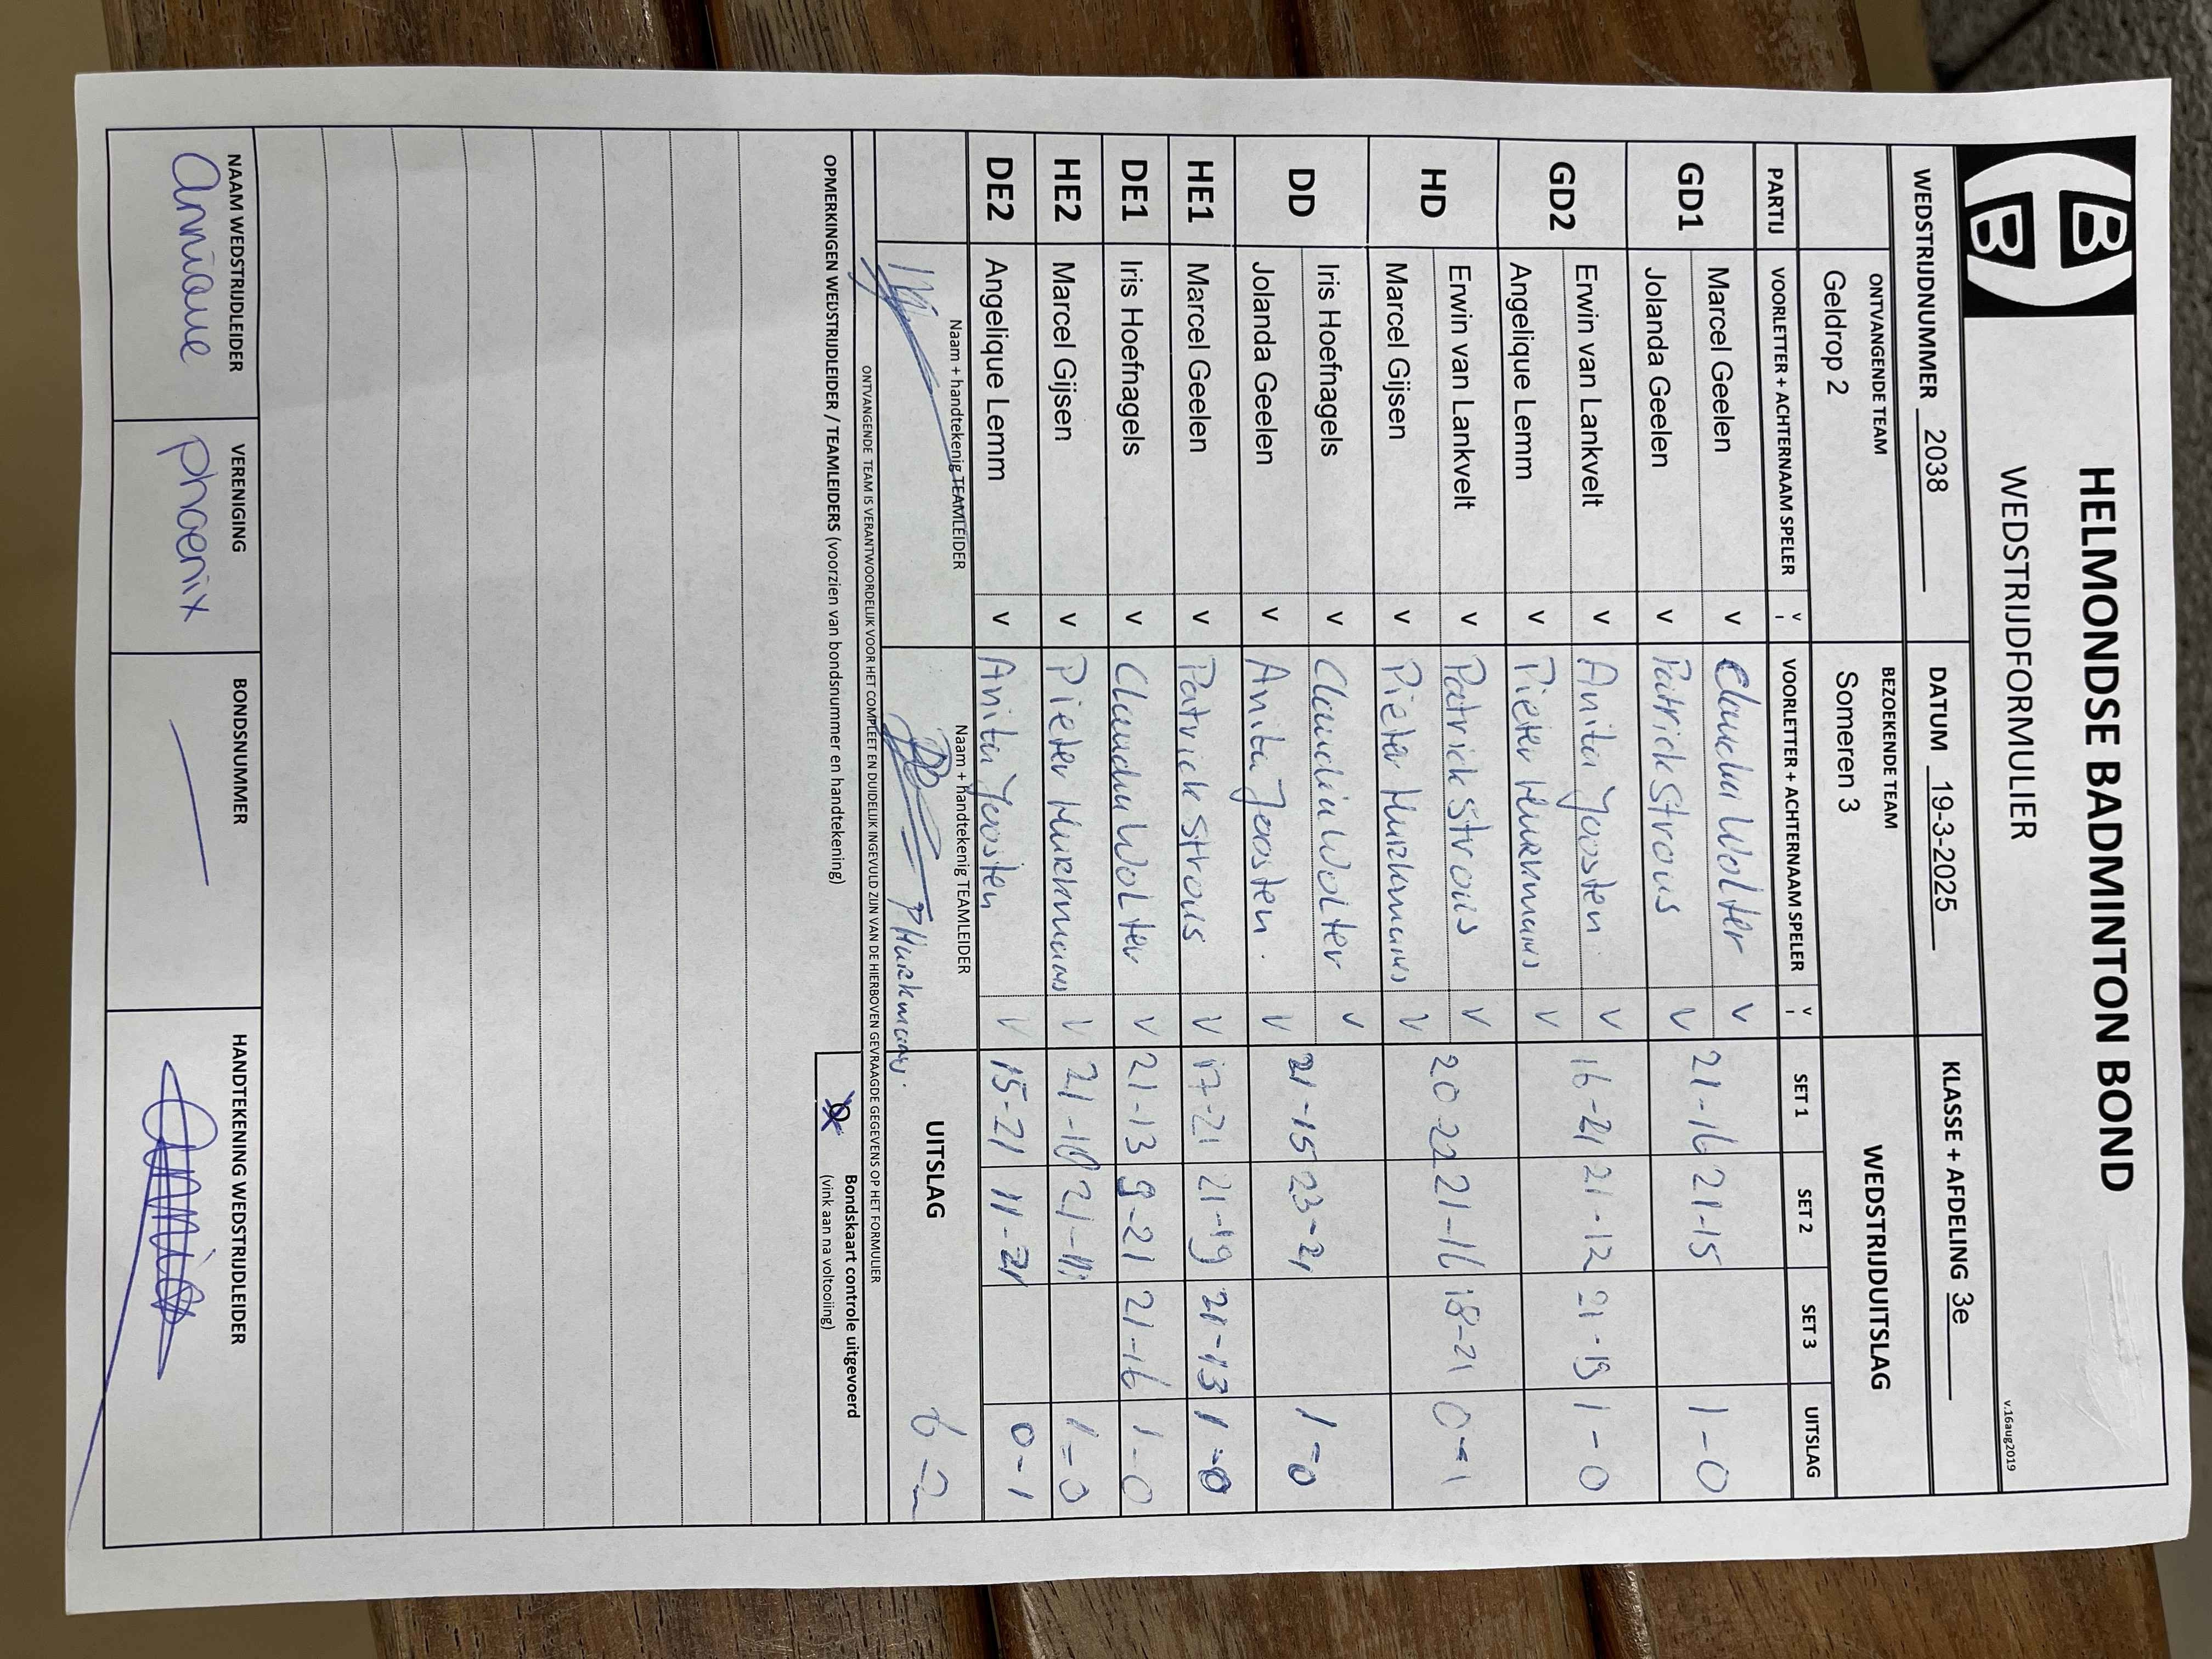 HELMONDSE BADMINTON BOND
WEDSTRIJDFORMULIER
v.16aug2019
WEDSTRIJDNUMMER 2038 DATUM 19-3-2025 KLASSE + AFDELING 3e
ONTVANGENDE TEAM BEZOEKENDE TEAM WEDSTRIJDUITSLAG
Geldrop 2 Someren 3
PARTIJ VOORLETTER + ACHTERNAAM SPELER V VOORLETTER + ACHTERNAAM SPELER V SET 1 SET 2 SET 3 UITSLAG
GD1 Marcel Geelen v Claudia Wolter v 21-16 21-15 1-0
Jolanda Geelen v Patrick Strous v
GD2 Erwin van Lankvelt v Anita Joosten v 16-21 21-12 21-19 1-0
Angelique Lemm v Pieter Hurkmans v
HD Erwin van Lankvelt v Patrick Strous v 20-22 21-16 18-21 0-1
Marcel Gijsen v Pieter Hurkmans v
DD Iris Hoefnagels v Claudia Wolter v 21-15 23-21 1-0
Jolanda Geelen v Anita Joosten v
HE1 Marcel Geelen v Patrick Strous v 17-21 21-19 21-13 1-0
DE1 Iris Hoefnagels v Claudia Wolter v 21-13 9-21 21-16 1-0
HE2 Marcel Gijsen v Pieter Hurkmans v 21-18 21-11 1-0
DE2 Angelique Lemm v Anita Joosten v 15-21 11-21 0-1
Naam + handtekenig TEAMLEIDER Naam + handtekenig TEAMLEIDER UITSLAG 6-2
P Hurkmans
ONTVANGENDE TEAM IS VERANTWOORDELIJK VOOR HET COMPLEET EN DUIDELIJK INGEVULD ZIJN VAN DE HIERBOVEN GEVRAAGDE GEGEVENS OP HET FORMULIER
OPMERKINGEN WEDSTRIJDLEIDER / TEAMLEIDERS (voorzien van bondsnummer en handtekening)
Bondskaart controle uitgevoerd
(vink aan na voltooiing)
NAAM WEDSTRIJDLEIDER VERENIGING BONDSNUMMER HANDTEKENING WEDSTRIJDLEIDER
Phoenix